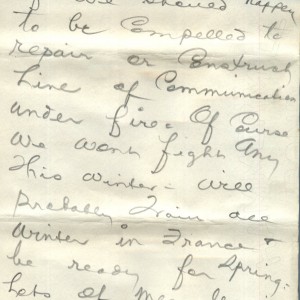 we should happen
to be Compelled to
repair or Construct
Line of Communication
under fire. Of Course
We wont fight Any
This winter - will
probably Train all
winter in France &
be ready for Spring.
Lots of